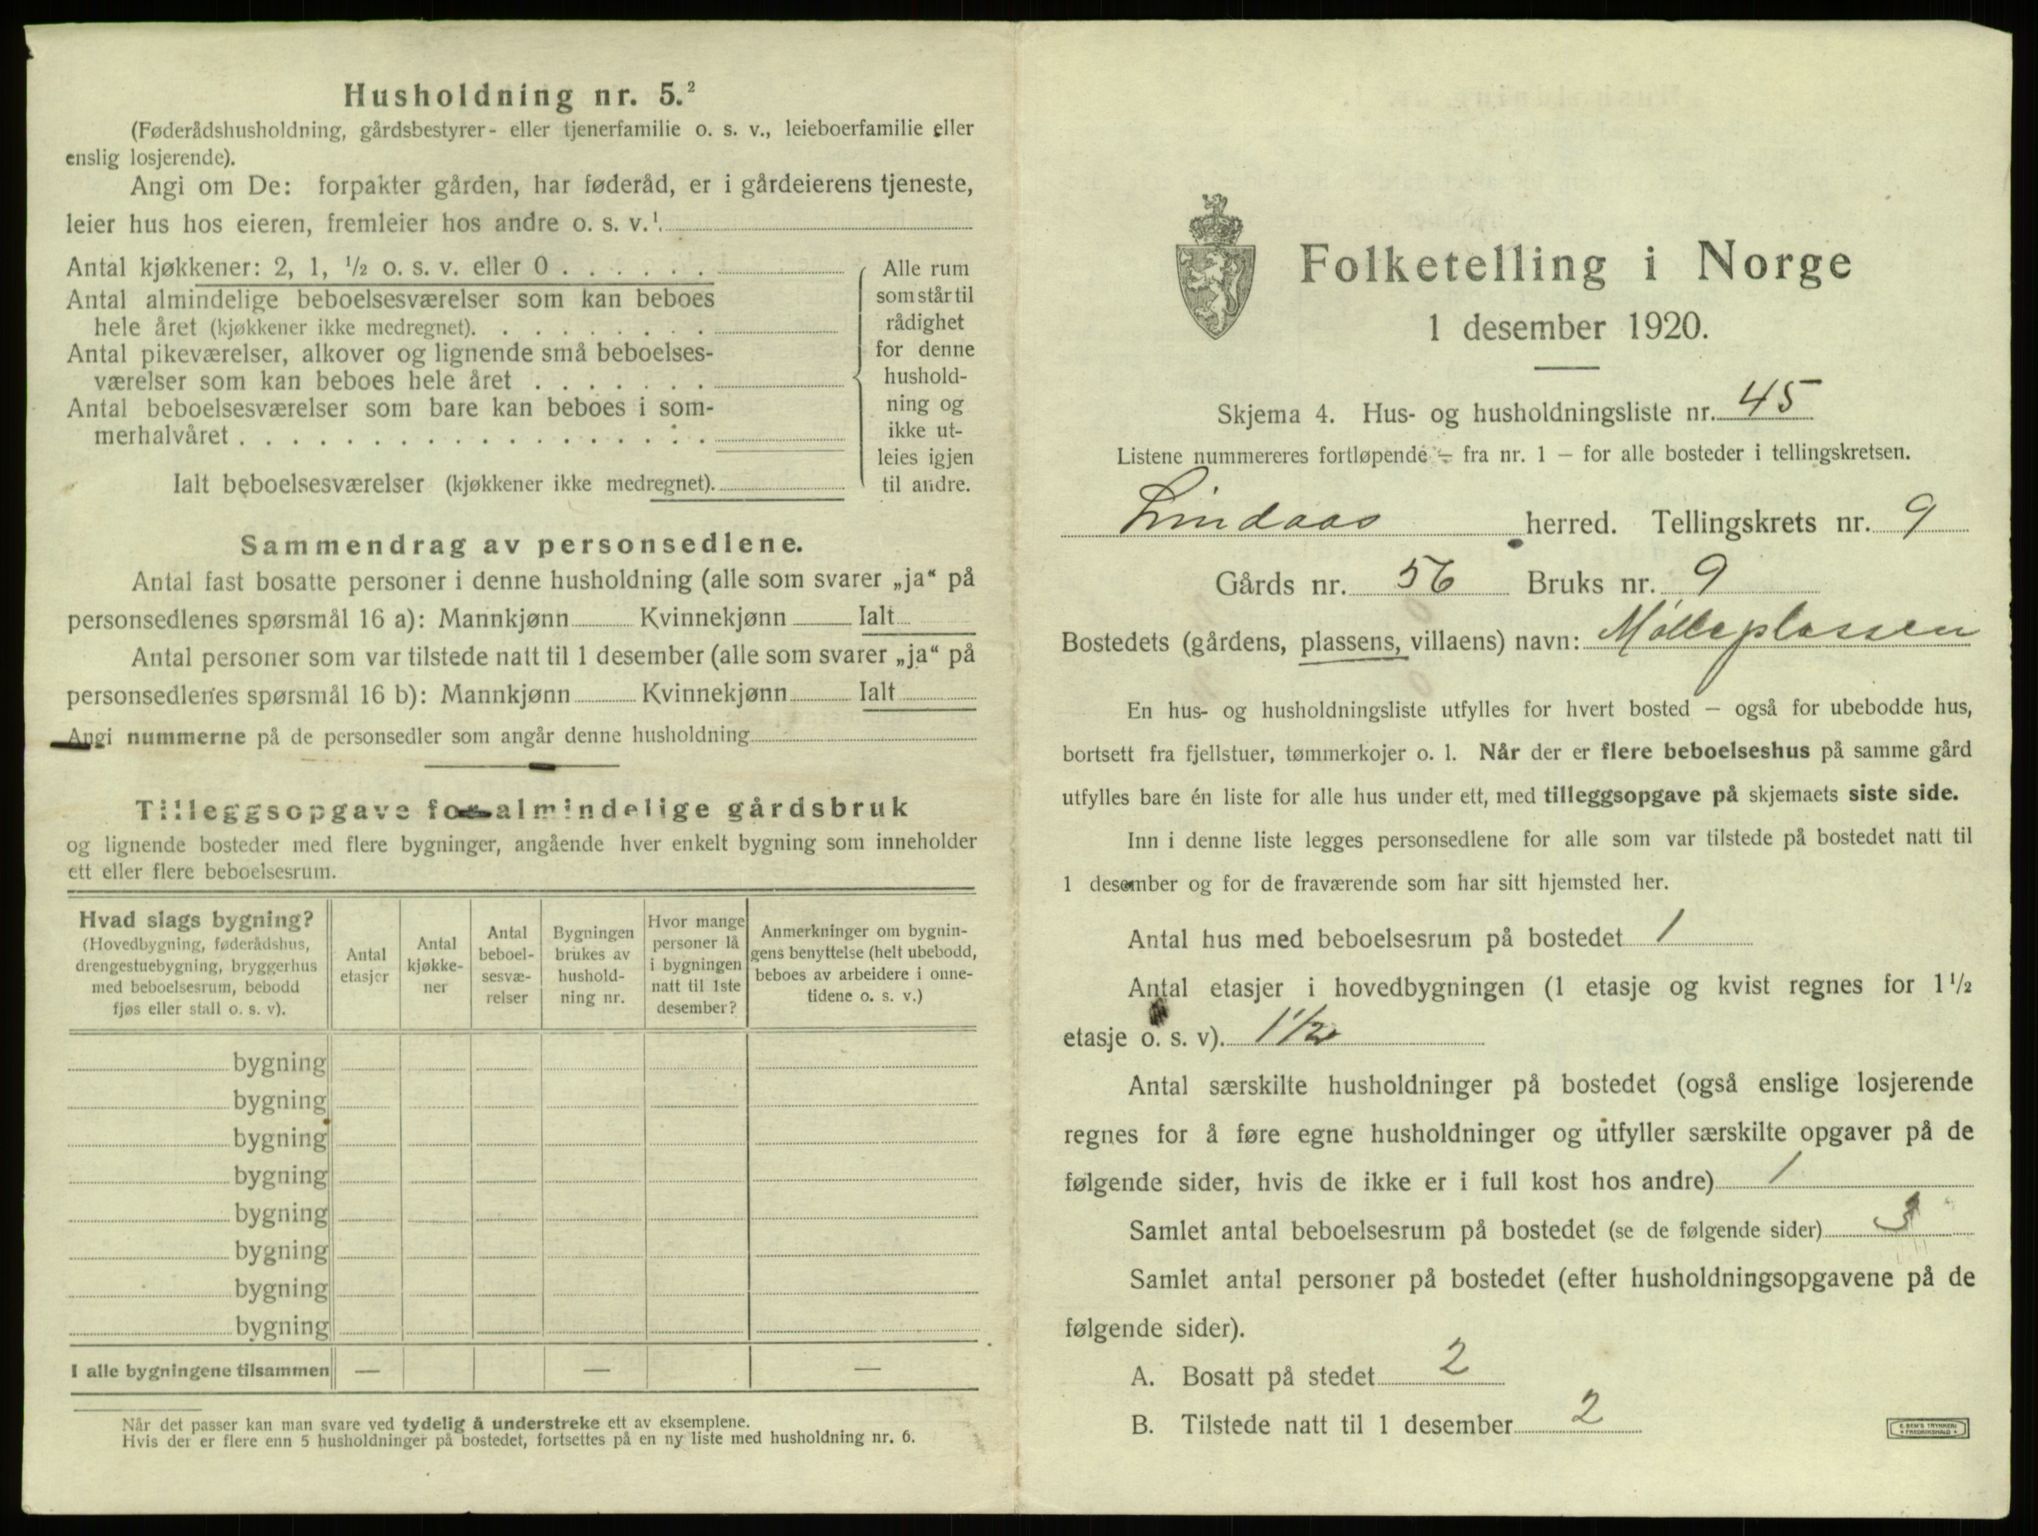 Husholdning nr. 5.²
(Føderådshusholdning, gårdsbestyrer- eller tjenerfamilie o. s. v., leieboerfamilie eller
enslig losjerende).
Angi om De: forpakter gården, har føderåd, er i gårdeierens tjeneste,
leier hus hos eieren, fremleier hos andre o. s. v.¹
Antal kjøkkener: 2, 1, ½ o. s. v. eller 0 . . . . . .
Antal almindelige beboelsesværelser som kan beboes
hele året (kjøkkener ikke medregnet). . . . . . . . .
Antal pikeværelser, alkover og lignende små beboelses-
værelser som kan beboes hele året . . . . . . .
Antal beboelsesværelser som bare kan beboes i som-
merhalvåret . . . . . . . . . . . . . . . . . .
Ialt beboelsesværelser (kjøkkener ikke medregnet).
Alle rum
som står til
rådighet
for denne
hushold-
ning og
ikke ut-
leies igjen
til andre.
Sammendrag av personsedlene.
Antal fast bosatte personer i denne husholdning (alle som svarer „ja“ på
personsedlenes spørsmål 16 a): Mannkjønn Kvinnekjønn Ialt
Antal personer som var tilstede natt til 1 desember (alle som svarer „ja“ på
personsedlenes spørsmål 16 b): Mannkjønn Kvinnekjønn Ialt
Angi nummerne på de personsedler som angår denne husholdning
Tilleggsopgave for almindelige gårdsbruk
og lignende bosteder med flere bygninger, angående hver enkelt bygning som inneholder
ett eller flere beboelsesrum.
Hvad slags bygning?
(Hovedbygning, føderådshus,
drengestuebygning, bryggerhus
med beboelsesrum, bebodd
fjøs eller stall o. s. v).
Antal
etasjer
Antal
kjøkke-
ner
Antal
beboel-
sesvæ-
relser
Bygningen
brukes av
hushold-
ning nr.
Hvor mange
personer lå
i bygningen
natt til 1ste
desember?
Anmerkninger om bygnin-
gens benyttelse (helt ubebodd,
beboes av arbeidere i onne-
tidene o. s. v.)
bygning
bygning
bygning
bygning
bygning
bygning
bygning
bygning
I alle bygningene tilsammen — — —
Når det passer kan man svare ved tydelig å understreke ett av eksemplene.
Hvis der er flere enn 5 husholdninger på bostedet, fortsettes på en ny liste med husholdning nr. 6.
Folketelling i Norge
1 desember 1920.
Skjema 4. Hus- og husholdningsliste nr. 45
Listene nummereres fortløpende – fra nr. 1 – for alle bosteder i tellingskretsen.
Lindaas herred. Tellingskrets nr. 9
Gårds nr. 56 Bruks nr. 9
Bostedets (gårdens, plassens, villaens) navn: Mølleplassen
En hus- og husholdningsliste utfylles for hvert bosted – også for ubebodde hus,
bortsett fra fjellstuer, tømmerkojer o. l. Når der er flere beboelseshus på samme gård
utfylles bare én liste for alle hus under ett, med tilleggsopgave på skjemaets siste side.
Inn i denne liste legges personsedlene for alle som var tilstede på bostedet natt til
1 desember og for de fraværende som har sitt hjemsted her.
Antal hus med beboelsesrum på bostedet 1
Antal etasjer i hovedbygningen (1 etasje og kvist regnes for 1½
etasje o. s. v). 1½
Antal særskilte husholdninger på bostedet (også enslige losjerende
regnes for å føre egne husholdninger og utfyller særskilte opgaver på de
følgende sider, hvis de ikke er i full kost hos andre) 1
Samlet antal beboelsesrum på bostedet (se de følgende sider) 3
Samlet antal personer på bostedet (efter husholdningsopgavene på de
følgende sider).
A. Bosatt på stedet 2
B. Tilstede natt til 1 desember 2